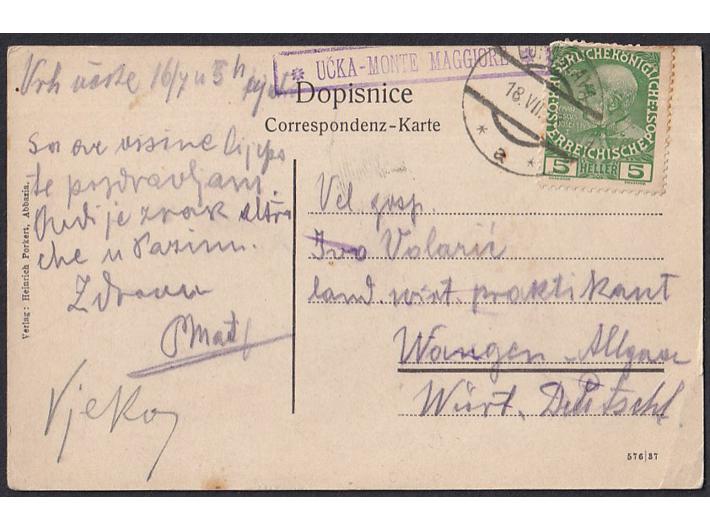 Vrh Učke 16/7 u 5 h
* UČKA-MONTE MAGGIORE *
Dopisnice
Correspondenz-Karte
18.VII.
* a *
KAISERLICHE KÖNIGLICHE
ÖSTERREICHISCHE POST
5 HELLER 5
sa ove visine lijepo
te pozdravljam.
Ovdi je zrak
u Pazinu.
Zdravo
Vjeko
Vel. gosp.
Ivo Volarić
land. wirt. praktikant
Wangen Allgäu
Würt. Deutschl.
Verlag: Heinrich Porkert, Abbazia.
576|37